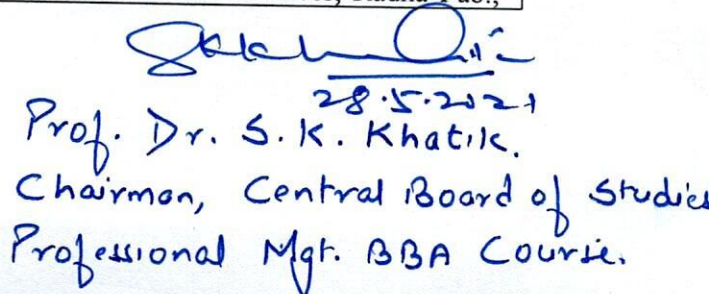 Pub.,
28.5.2021
Prof. Dr. S. K. Khatik.
Chairman, Central Board of Studies
Professional Mgt. BBA Course.